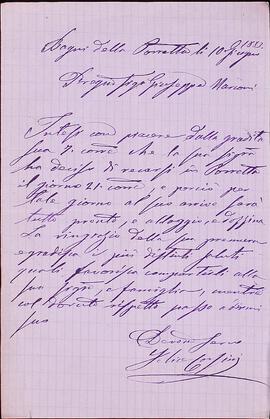 Bagni della Porretta li 10 Giugno 1882.
Pregmo Sigr Giuseppe Marconi
Intesi con piacere dalla gradita
sua 9. corre che la sua Sigra
ha deciso di recarsi in Porretta
il giorno 21. corre, e perciò per
tale giorno al suo arrivo sarà
tutto pronto, e alloggio, e
La ringrazio della sua premura
e gradisca i più distinti saluti
quali favorirà compartirli alla
sua Sigra, e famiglia, mentre
col dovuto rispetto passo a dirmi
suo
Devmo Servo